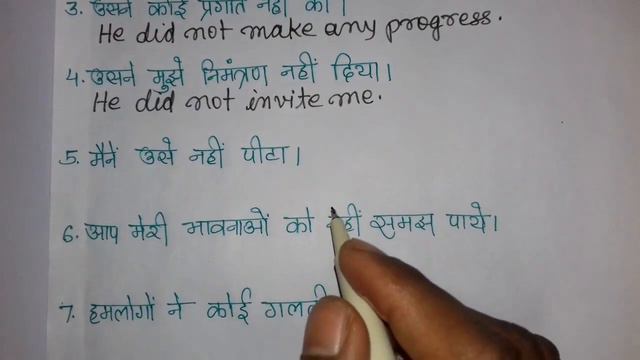 3. उसने कोई प्रगति नहीं की।
He did not make any progress.
4. उसने मुझे निमंत्रण नहीं दिया।
He did not invite me.
5. मैनें उसे नहीं पीटा।
6. आप मेरी भावनाओं को नहीं समझ पाये।
7. हमलोगों ने कोई गलती